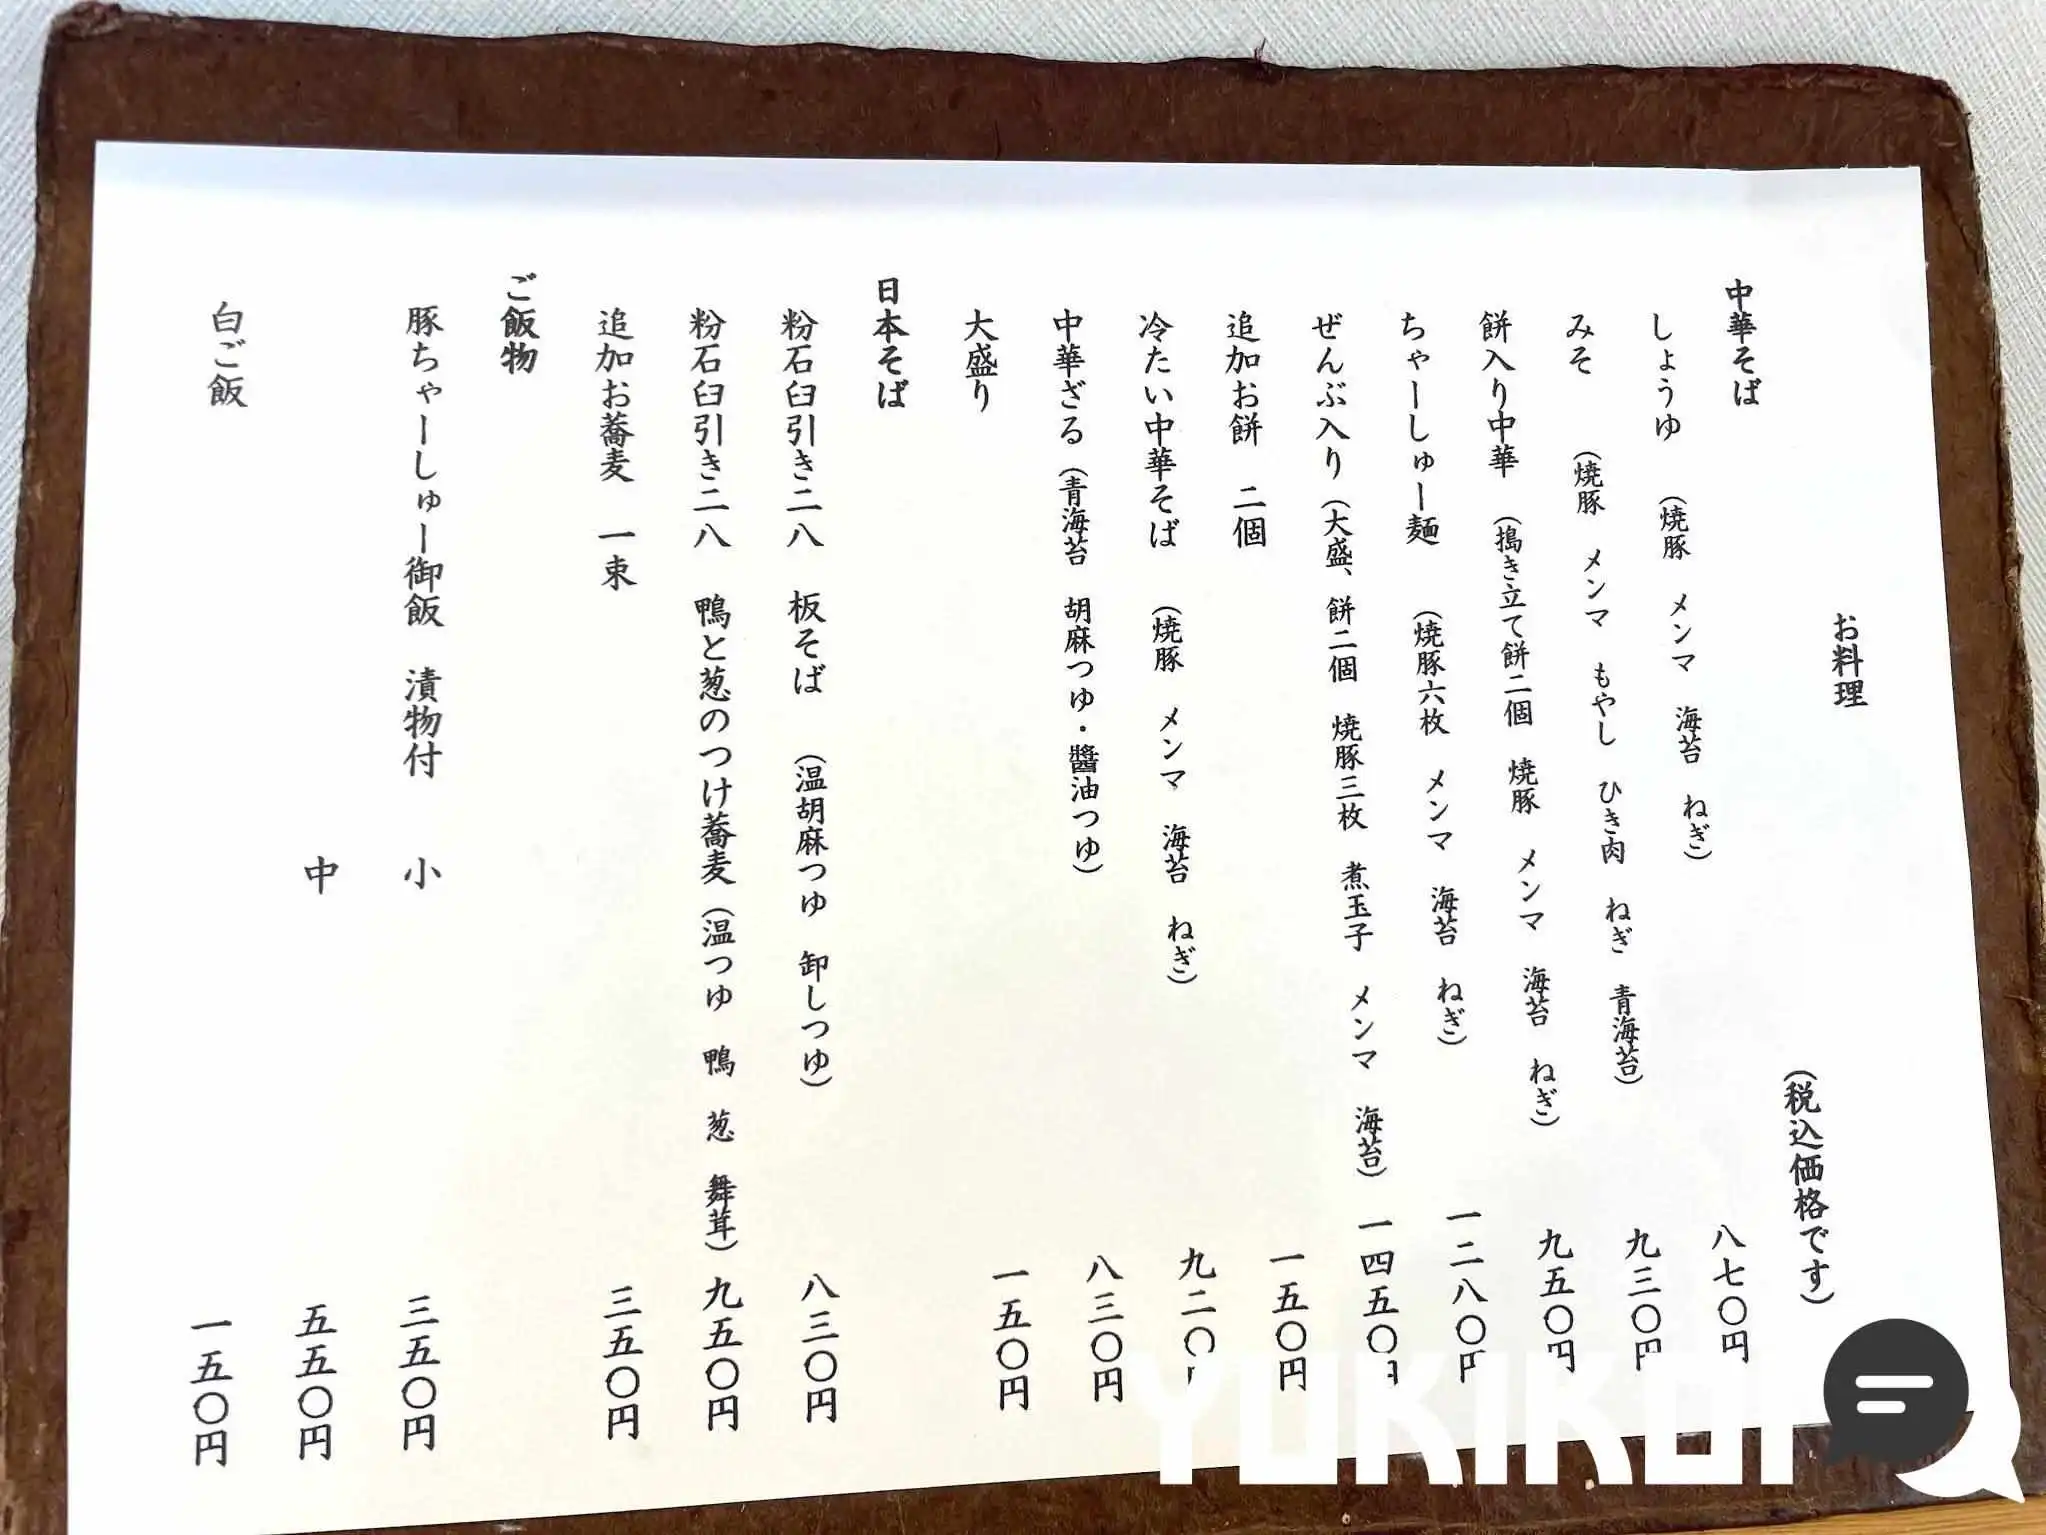 お料理
(税込価格です)
中華そば
しょうゆ (焼豚 メンマ 海苔 ねぎ) 八七〇円
みそ (焼豚 メンマ もやし ひき肉 ねぎ 青海苔) 九三〇円
餅入り中華 (搗き立て餅二個 焼豚 メンマ 海苔 ねぎ) 九五〇円
ちゃーしゅー麺 (焼豚六枚 メンマ 海苔 ねぎ) 一二八〇円
ぜんぶ入り (大盛、餅二個 焼豚三枚 煮玉子 メンマ 海苔) 一四五〇円
追加お餅 二個 一五〇円
冷たい中華そば (焼豚 メンマ 海苔 ねぎ) 九二〇円
中華ざる (青海苔 胡麻つゆ・醬油つゆ) 八三〇円
大盛り 一五〇円
日本そば
粉石臼引き二八 板そば (温胡麻つゆ 卸しつゆ) 八三〇円
粉石臼引き二八 鴨と葱のつけ蕎麦 (温つゆ 鴨 葱 舞茸) 九五〇円
追加お蕎麦 一束 三五〇円
ご飯物
豚ちゃーしゅー御飯 漬物付 小 三五〇円
中 五五〇円
白ご飯 一五〇円